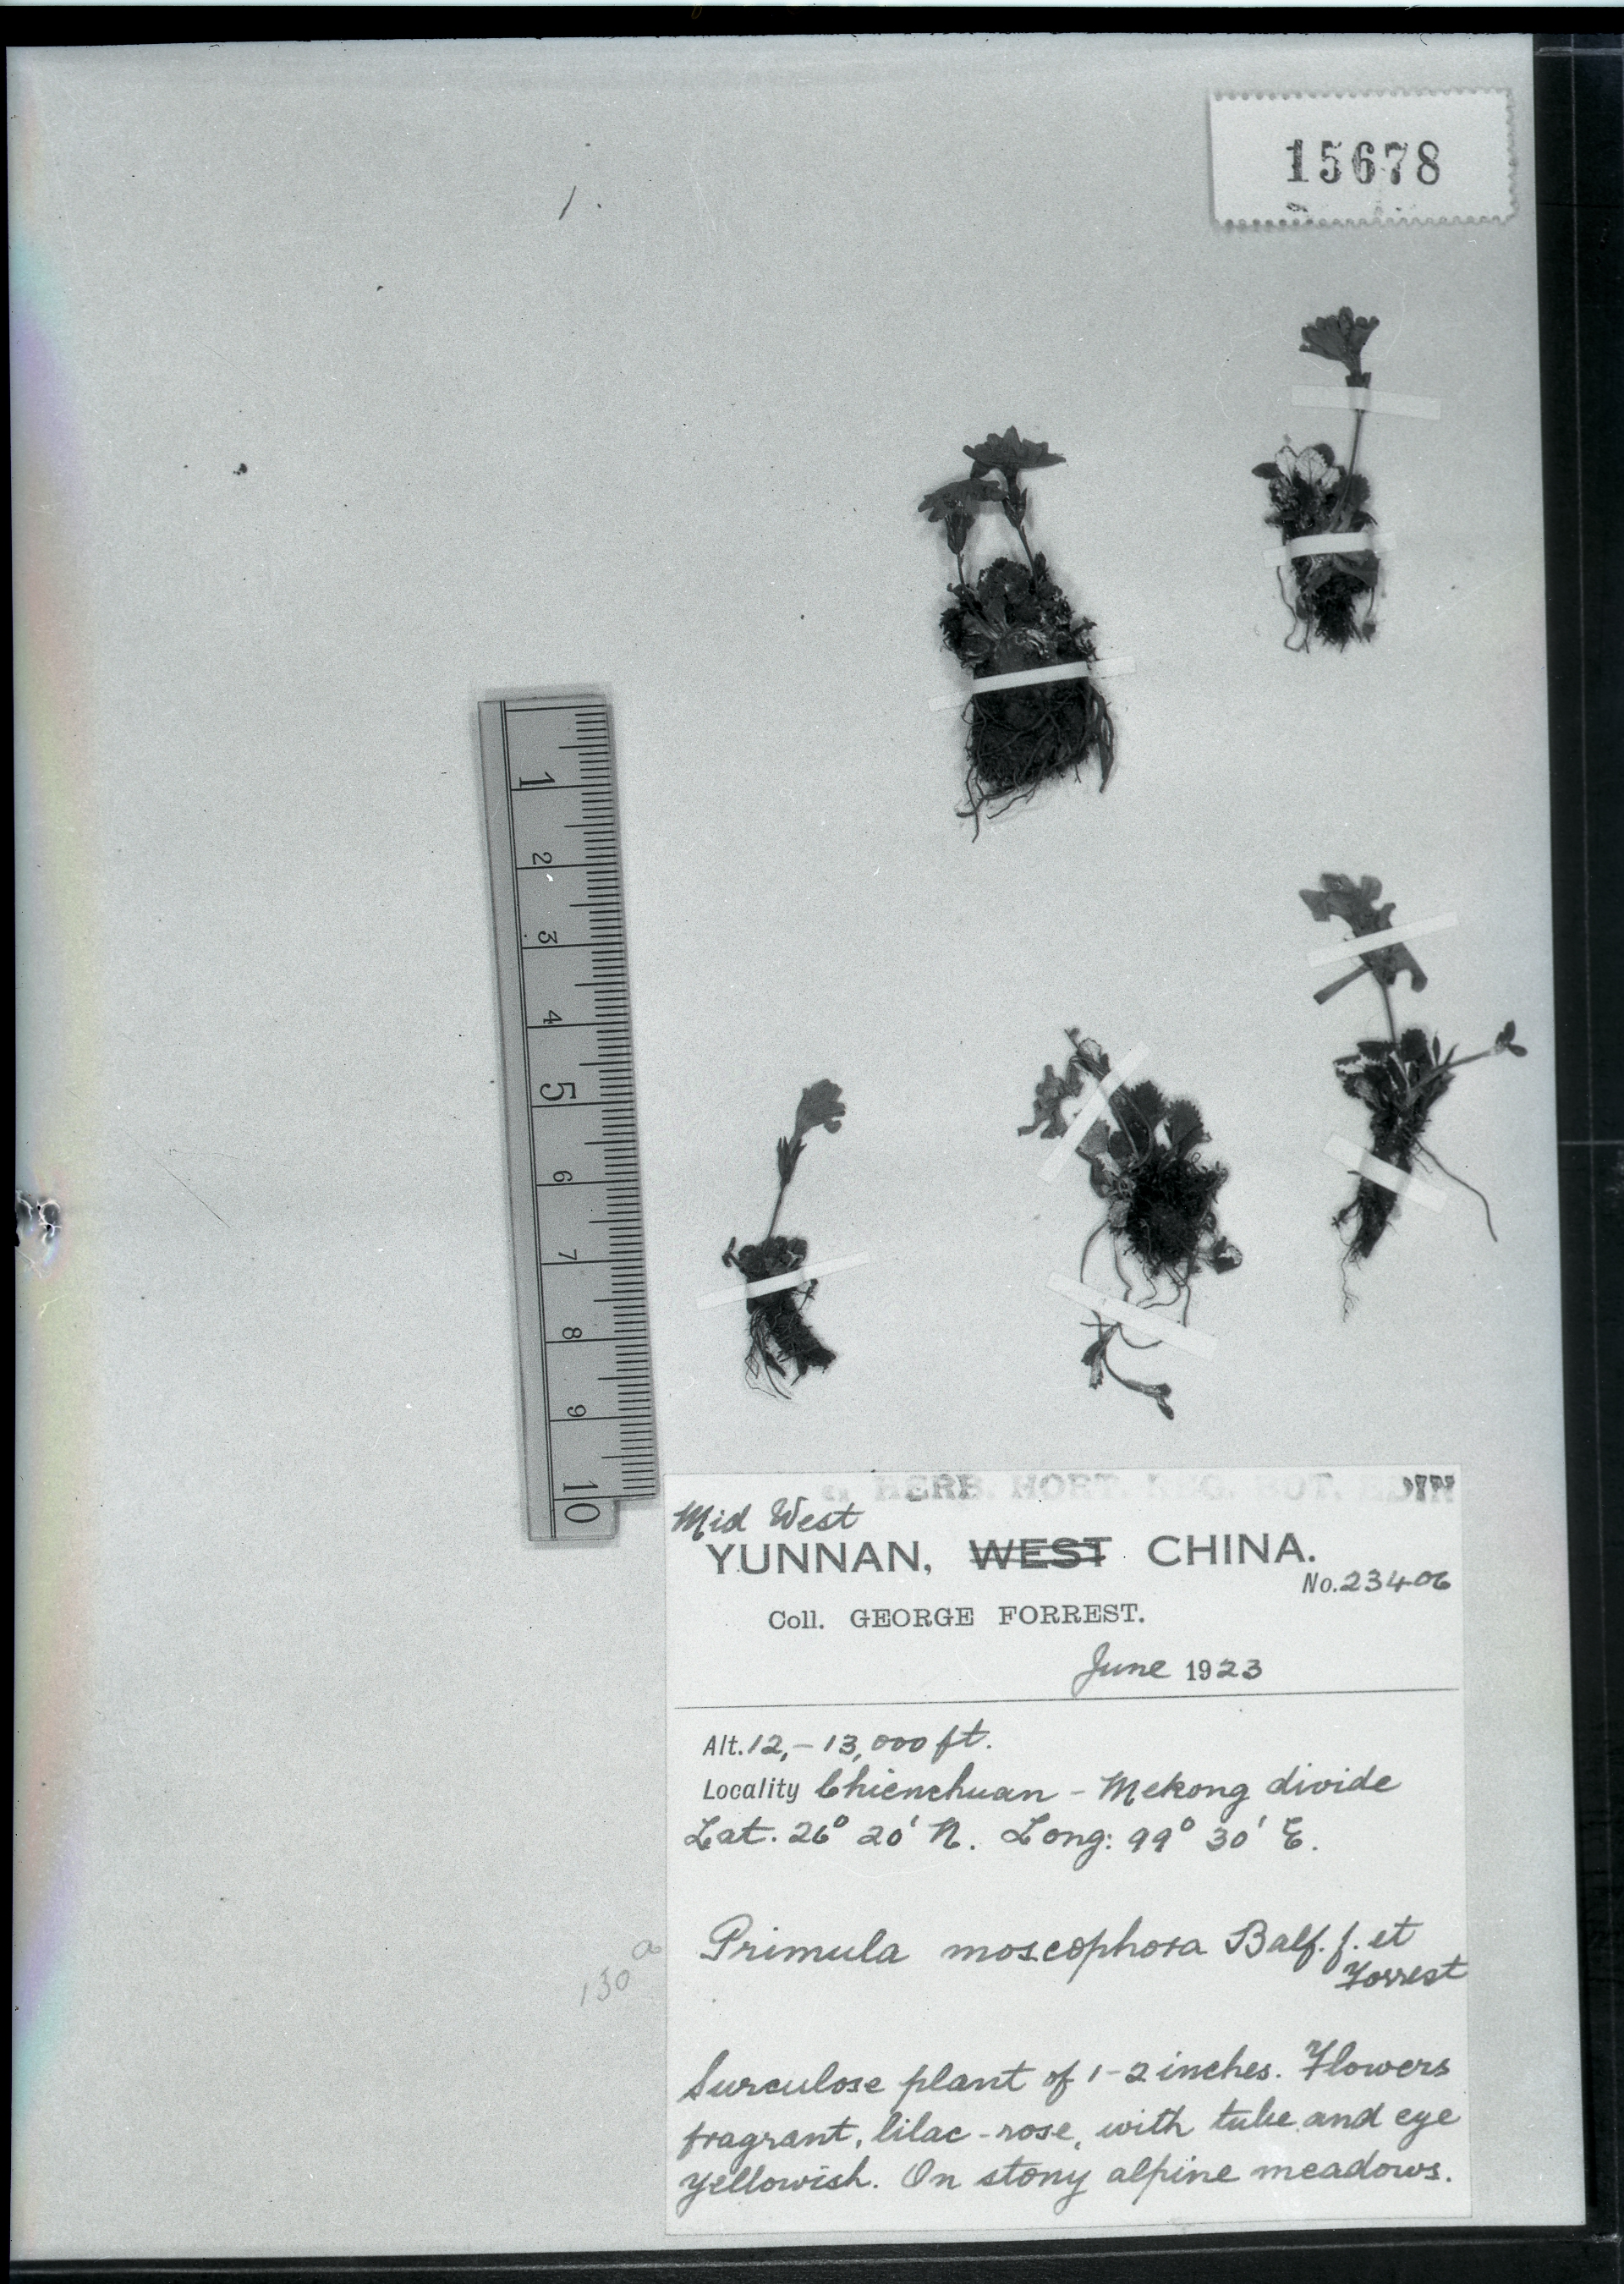 15678
1.
1
2
3
4
5
6
7
8
9
10
HERB. HORT. BOT. EDIN
Mid West
YUNNAN, WEST CHINA.
No. 23406
Coll. GEORGE FORREST.
June 1923
Alt. 12,-13,000 ft.
Locality Chienchuan - Mekong divide
Lat. 26° 20' N. Long: 99° 30' E.
Primula moscophora Balf. f. et
Forrest
130a
Surculose plant of 1-2 inches. Flowers
fragrant, lilac-rose, with tube and eye
yellowish. On stony alpine meadows.